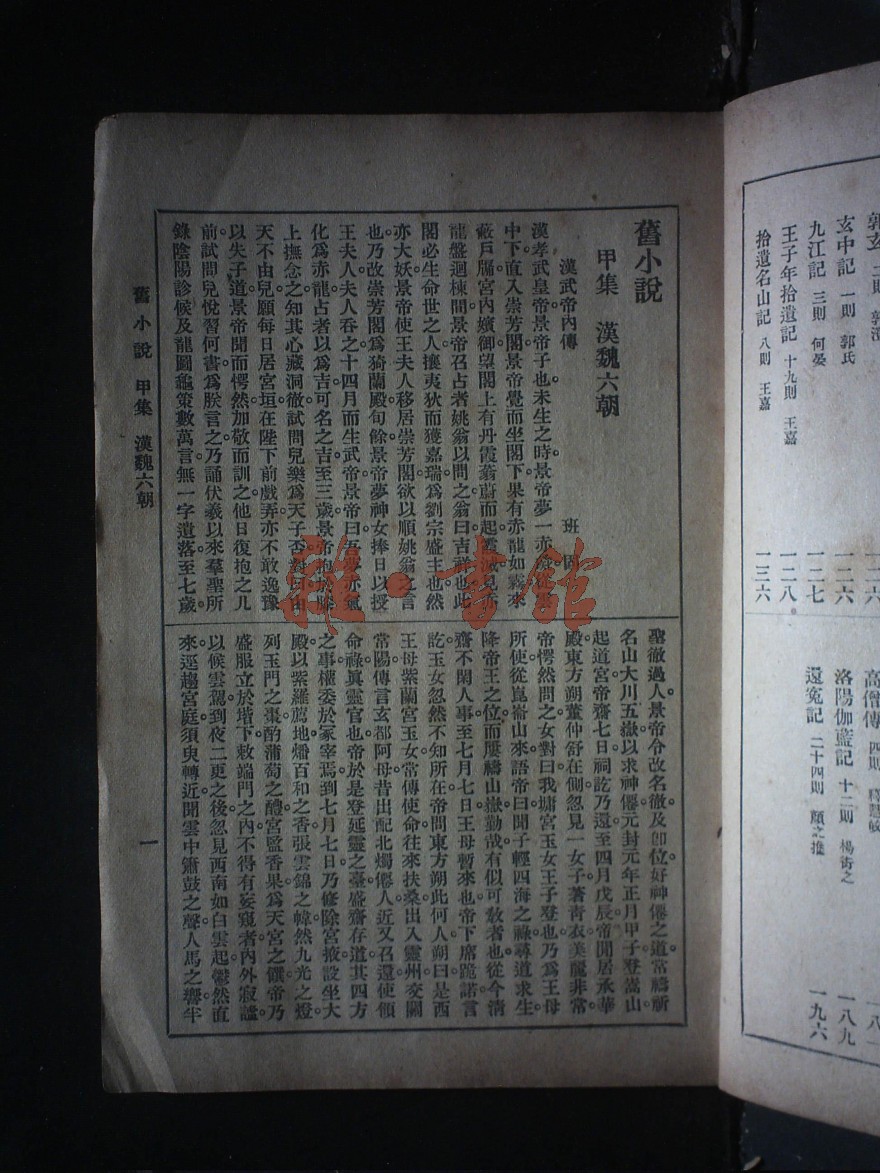 郭玄
玄中記 一則 郭氏
一二六
九江記 三則 何晏
一二七
王子年拾遺記 十九則 王嘉
一二八
拾遺名山記 八則 王嘉
一三六
高僧傳 四則 釋慧皎
洛陽伽藍記 十二則 楊衒之
一八九
還冤記 二十四則 顏之推
一九六
舊小說
甲集 漢魏六朝
漢武帝內傳 班固
漢孝武皇帝景帝子也未生之時景帝夢一赤彘從雲
中下直入崇芳閣景帝覺而坐閣下果有赤龍如霧來
蔽戶牖宮內嬪御望閣上有丹霞蓊蔚而起霞滅見赤
龍盤迴棟間景帝召占者姚翁以問之翁曰吉祥也此
閣必生命世之人攘夷狄而獲嘉瑞爲劉宗盛主也然
亦大妖景帝使王夫人移居崇芳閣欲以順姚翁之言
也乃改崇芳閣爲猗蘭殿旬餘景帝夢神女捧日以授
王夫人夫人吞之十四月而生武帝景帝曰吾夢赤氣
化爲赤龍占者以爲吉可名之吉至三歲景帝抱於膝
上撫念之知其心藏洞徹試問兒樂爲天子否對曰由
天不由兒願每日居宮垣在陛下前戲弄亦不敢逸豫
以失子道景帝聞而愕然加敬而訓之他日復抱之几
前試問兒悅習何書爲朕言之乃誦伏羲以來羣聖所
錄陰陽診候及龍圖龜策數萬言無一字遺落至七歲
聖徹過人景帝令改名徹及卽位好神僊之道常禱祈
名山大川五嶽以求神僊元封元年正月甲子登嵩山
起道宮帝齋七日祠訖乃還至四月戊辰帝閒居承華
殿東方朔董仲舒在側忽見一女子著靑衣美麗非常
帝愕然問之女對曰我墉宮玉女王子登也乃爲王母
所使從崑崙山來語帝曰聞子輕四海之祿尋道求生
降帝王之位而屢禱山嶽勤哉有似可敎者也從今淸
齋不閑人事至七月七日王母暫來也帝下席跪諾言
訖玉女忽然不知所在帝問東方朔此何人朔曰是西
王母紫蘭宮玉女常傳使命往來扶桑出入靈州交關
常陽傳言玄都阿母昔出配北燭僊人近又召還使領
命祿眞靈官也帝於是登延靈之臺盛齋存道其四方
之事權委於冢宰焉到七月七日乃修除宮掖設坐大
殿以紫羅薦地燔百和之香張雲錦之幃然九光之燈
列玉門之棗酌蒲萄之醴宮監香果爲天宮之饌帝乃
盛服立於堦下敕端門之內不得有妄窺者內外寂謐
以候雲駕到夜二更之後忽見西南如白雲起鬱然直
來逕趨宮庭須臾轉近聞雲中簫鼓之聲人馬之響半
舊小說 甲集 漢魏六朝
一
雜·書館